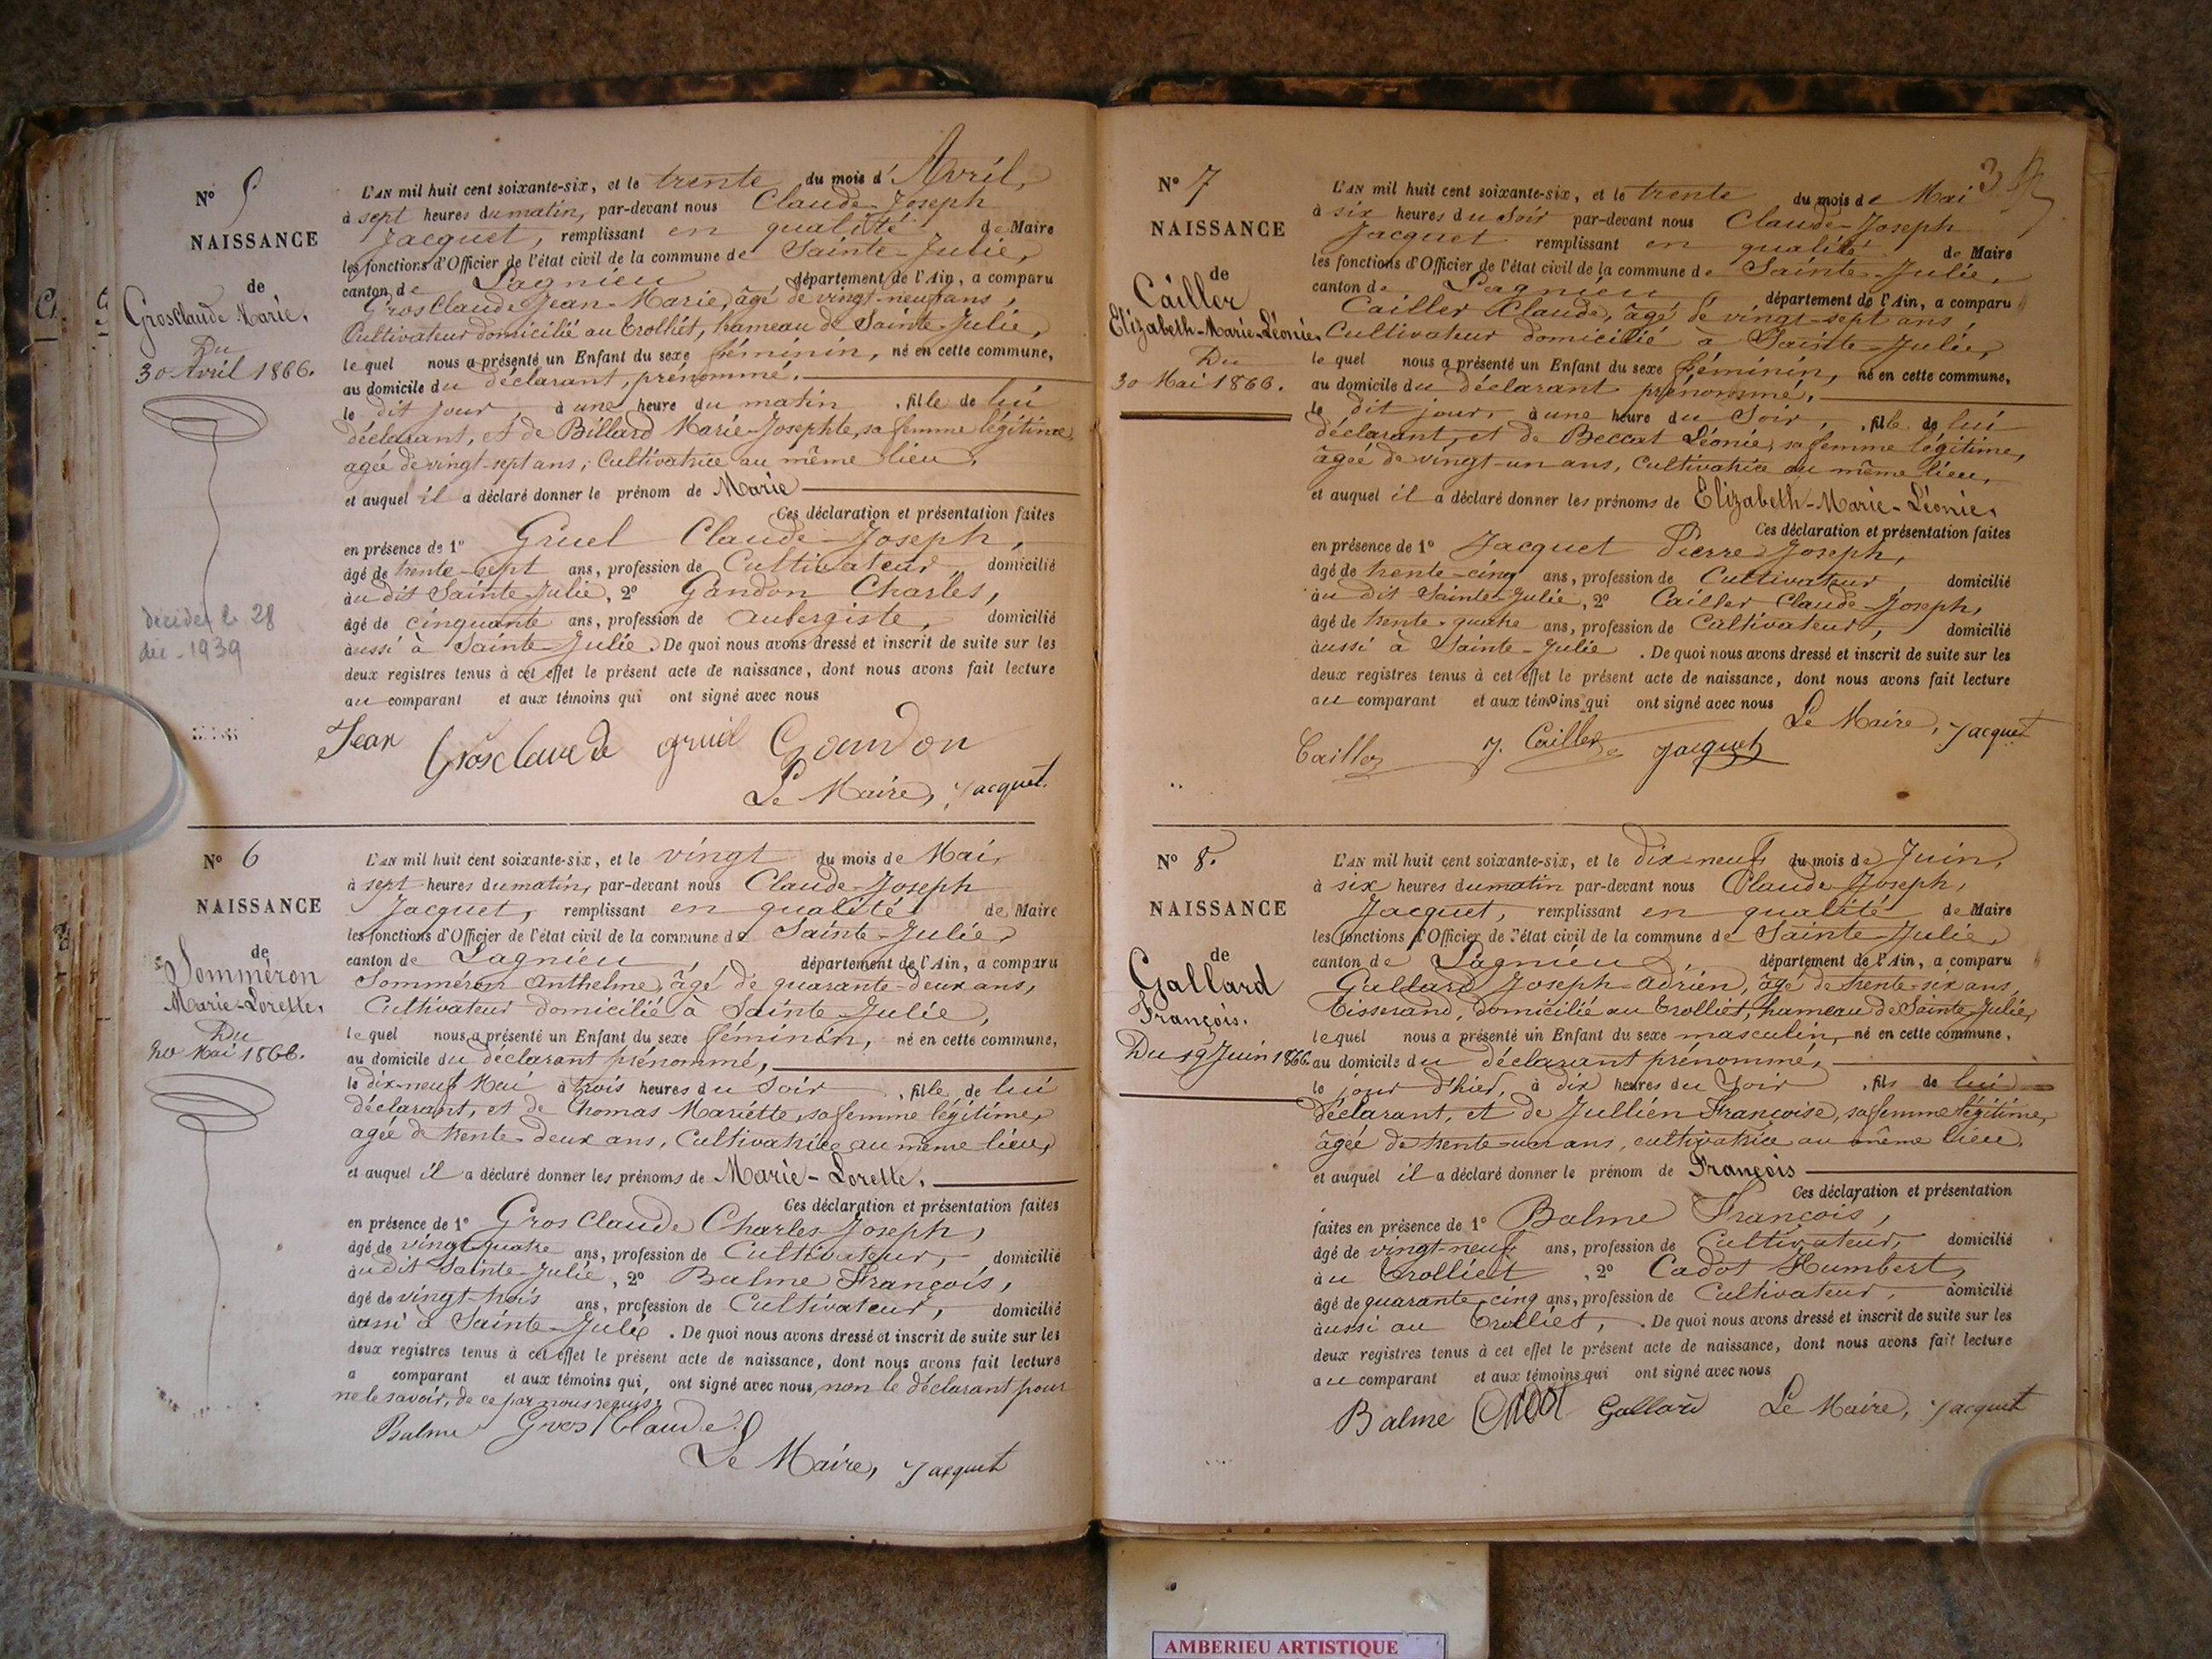 N° 5
NAISSANCE
de
Grosclaude Marie.
Du
30 Avril 1866.
décédée le 28
déc. 1939
L'AN mil huit cent soixante-six, et le trente du mois d'Avril,
à sept heures du matin, par-devant nous Claude-Joseph
Jacquet, remplissant en qualité de Maire
les fonctions d'Officier de l'état civil de la commune de Sainte-Julie,
canton de Lagnieu département de l'Ain, a comparu
Grosclaude Jean-Marie, âgé de vingt-neuf ans,
Cultivateur domicilié au Trolliet, hameau de Sainte-Julie,
le quel nous a présenté un Enfant du sexe féminin, né en cette commune,
au domicile du déclarant, prénommé.
le dit jour à une heure du matin, fille de lui
déclarant, et de Billard Marie-Josephte, sa femme légitime,
agée de vingt-sept ans; Cultivatrice au même lieu.
et auquel il a déclaré donner le prénom de Marie
Ces déclaration et présentation faites
en présence de 1° Gruel Claude-Joseph,
âgé de trente-sept ans, profession de Cultivateur, domicilié
au dit Sainte-Julie, 2° Gandon Charles,
âgé de cinquante ans, profession de Aubergiste, domicilié
aussi à Sainte-Julie. De quoi nous avons dressé et inscrit de suite sur les
deux registres tenus à cet effet le présent acte de naissance, dont nous avons fait lecture
au comparant et aux témoins qui ont signé avec nous
Jean Grosclaude gruel Gandon
Le Maire, Jacquet.
N° 6
NAISSANCE
de
Somméron
Marie-Lorette.
Du
20 Mai 1866.
L'AN mil huit cent soixante-six, et le vingt du mois de Mai,
à sept heures du matin, par-devant nous Claude-Joseph
Jacquet, remplissant en qualité de Maire
les fonctions d'Officier de l'état civil de la commune de Sainte-Julie,
canton de Lagnieu, département de l'Ain, a comparu
Somméron Anthelme, âgé de quarante-deux ans,
Cultivateur domicilié à Sainte-Julie,
le quel nous a présenté un Enfant du sexe féminin, né en cette commune,
au domicile du déclarant prénommé,
le dix-neuf Mai à trois heures du soir, fille de lui
déclarant, et de Thomas Mariette, sa femme légitime,
agée de trente-deux ans, Cultivatrice au même lieu,
et auquel il a déclaré donner les prénoms de Marie-Lorette.
Ces déclaration et présentation faites
en présence de 1° Grosclaude Charles-Joseph,
âgé de vingt-quatre ans, profession de Cultivateur, domicilié
au dit Sainte-Julie, 2° Balme François,
âgé de vingt-trois ans, profession de Cultivateur, domicilié
aussi à Sainte-Julie. De quoi nous avons dressé et inscrit de suite sur les
deux registres tenus à cet effet le présent acte de naissance, dont nous avons fait lecture
a comparant et aux témoins qui, ont signé avec nous, non le déclarant pour
ne le savoir, de ce par nous requis.
Balme Gros Claude
Le Maire, Jacquet
3
N° 7
NAISSANCE
de
Cailler
Elizabeth-Marie-Léonie.
Du
30 Mai 1866.
L'AN mil huit cent soixante-six, et le trente du mois de Mai
à six heures du Soir par-devant nous Claude-Joseph
Jacquet remplissant en qualité de Maire
les fonctions d'Officier de l'état civil de la commune de Sainte-Julie,
canton de Lagnieu, département de l'Ain, a comparu
Cailler Claude, âgé de vingt-sept ans,
Cultivateur domicilié à Sainte-Julie,
le quel nous a présenté un Enfant du sexe féminin, né en cette commune,
au domicile du déclarant prénommé,
le dit jour, à une heure du Soir, fille de lui
déclarant, et de Beccat Léonie, sa femme légitime,
âgée de vingt-un ans, Cultivatrice au même lieu,
et auquel il a déclaré donner les prénoms de Elizabeth-Marie-Léonie.
Ces déclaration et présentation faites
en présence de 1° Jacquet Pierre-Joseph,
âgé de trente-cinq ans, profession de Cultivateur, domicilié
au dit Sainte-Julie, 2° Cailler Claude-Joseph,
âgé de trente-quatre ans, profession de Cultivateur, domicilié
aussi à Sainte-Julie. De quoi nous avons dressé et inscrit de suite sur les
deux registres tenus à cet effet le présent acte de naissance, dont nous avons fait lecture
au comparant et aux témoins qui ont signé avec nous
Le Maire, Jacquet
Cailler J. Cailler Jacquet
N° 8.
NAISSANCE
de
Gallard
François.
Du 19 Juin 1866.
L'AN mil huit cent soixante-six, et le dix-neuf du mois de Juin,
à six heures du matin par-devant nous Claude Joseph,
Jacquet, remplissant en qualité de Maire
les fonctions d'Officier de l'état civil de la commune de Sainte-Julie,
canton de Lagnieu, département de l'Ain, a comparu
Gallard Joseph-Adrien, âgé de trente-six ans,
Tisserand, domicilié au Trolliet, hameau de Sainte-Julie,
le quel nous a présenté un Enfant du sexe masculin, né en cette commune,
au domicile du déclarant prénommé,
le jour d'hier, à dix heures du Soir, fils de lui
déclarant, et de Jullien Françoise, sa femme légitime,
âgée de trente-un ans, cultivatrice au même lieu.
et auquel il a déclaré donner le prénom de François
Ces déclaration et présentation
faites en présence de 1° Balme François,
âgé de vingt-neuf ans, profession de Cultivateur, domicilié
au Trolliet, 2° Cadot Humbert,
âgé de quarante-cinq ans, profession de Cultivateur, domicilié
aussi au Trolliet, . De quoi nous avons dressé et inscrit de suite sur les
deux registres tenus à cet effet le présent acte de naissance, dont nous avons fait lecture
au comparant et aux témoins qui ont signé avec nous
Balme Cadot Gallard Le Maire, Jacquet
AMBERIEU ARTISTIQUE